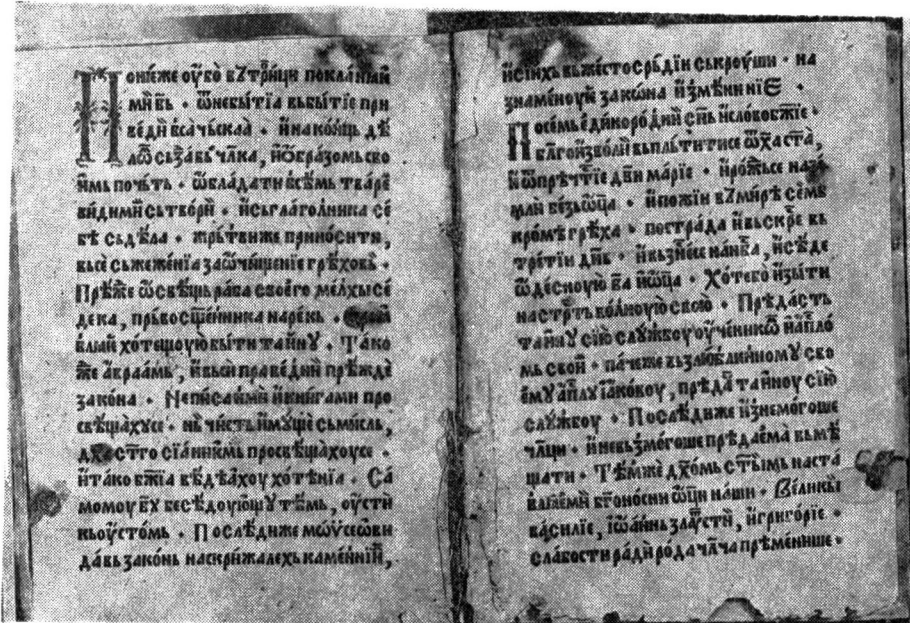 Понѥже ѹ҆бо въ трⷪ҇ици покланꙗ́ѥ
мїи б҃ь · ѿ небытїа вьбытїе при
ве́дїи вса́чьскаꙗ · и҆ на коньць дѣ
лѡⷨ сьꙁⷣа̀ вь чл҃ка, и҆ ѡ҆́браꙁомь сво
и҆́мь почь́ть · ѡ҆блада́ти вѣсѣ́мь тва́ре
ви́димїи сьтворѝ · и҆ сьглаго́лника се́
бѣ сьдѣ́ла · жрь́твиже приноси́ти,
вьсе сьжеже́нїа ꙁа ѡ҆чи́щенїе грѣ́ховь ·
Прѣ́жⷣе ѡ҆свѣ́щь раба̀ своѥго̀ мелхы се́
де́ка, прьвосщ҃е́нника наре́кь ·
хо́тещоую бы́ти та́йну · Та́ко
же а҆враа́мь, и҆ вьси̑ пра́ве́дїи прѣ́жде
ꙁако́на · Непи́са́ими и҆ кнїгами про
свѣ́щахусе · нь̀ чи́сть и҆му́ще сьми́сль,
дх҃ сто҃го сїа́нїимь просвѣ́щахоусе ·
и҆ тако бж҃їа вѣ́дѣа́хоу хотѣ́нїа · Са́
момоу б҃у бесѣ́доую́щу тѣ́мь, оу҆сти́
кьоу҆сто́мь · Послѣ́диже мѡѵсеѡ́ви
да́вь ꙁако́нь на скри́жалехь ка́ме́ннїи,
и҆ сі́ихь вьже́стосрь́дїи ськроу́ши · на
ꙁнаме́ноуи ꙁако́на и҆ꙁмѣ́ни нїе ·
По се́мь е҆ди́норо́днїи сн҃ь и҆ сло́во бж҃їе ·
бл҃гои҆ꙁво́ли вьпль́ти́тисе ѿ дх҃а ст҃а,
и҆ ѿ прѣчⷭ҇тїе дв҃и ма́рїе · и҆ ро́жⷣьсе
беꙁьѿца · и҆ пожи́и въ ми́рѣ се́мь
кро́мѣ грѣ́ха · постра́да и҆ вьскрⷭ҇е вь
тре́тїи дн҃ь · и҆ вьꙁне́сесе на нб҃а, и҆ сѣ́де
ѡ҆де́сноую б҃а и҆ ѿца · Хо́те бо и҆ꙁыти
на стрⷭ҇ть во́лноую свою̀ · Прѣда́сть
та́йну сїю̀ слу́жбоу оу҆че́никѡⷨ и҆ а҆пⷭ҇ло
мь свои̑ · па́чеже вьꙁлю́блѥнному сво
е́му а҆пⷭ҇лу їа҆́ковоу, прѣда̀ та́йноу сїю̀
слу́жбоу · Послѣ́диже и҆ꙁнемо́гоше
чл҃ци · и҆ невьꙁмо́гоше прѣдае́ма̀ вьмѣ́
щати · Тѣ́мже дх҃о́мь ст҃ы́мь наста́
влѥ́ми бг҃оно́снїи ѿци на́ши · Ве́ликы
ва́силїе, і҆ѡа́ннь ꙁлаⷮу́стїи, и҆ григо́рїе ·
сла́бости ра́ди ро́да чл҃ча прѣмени́ше ·